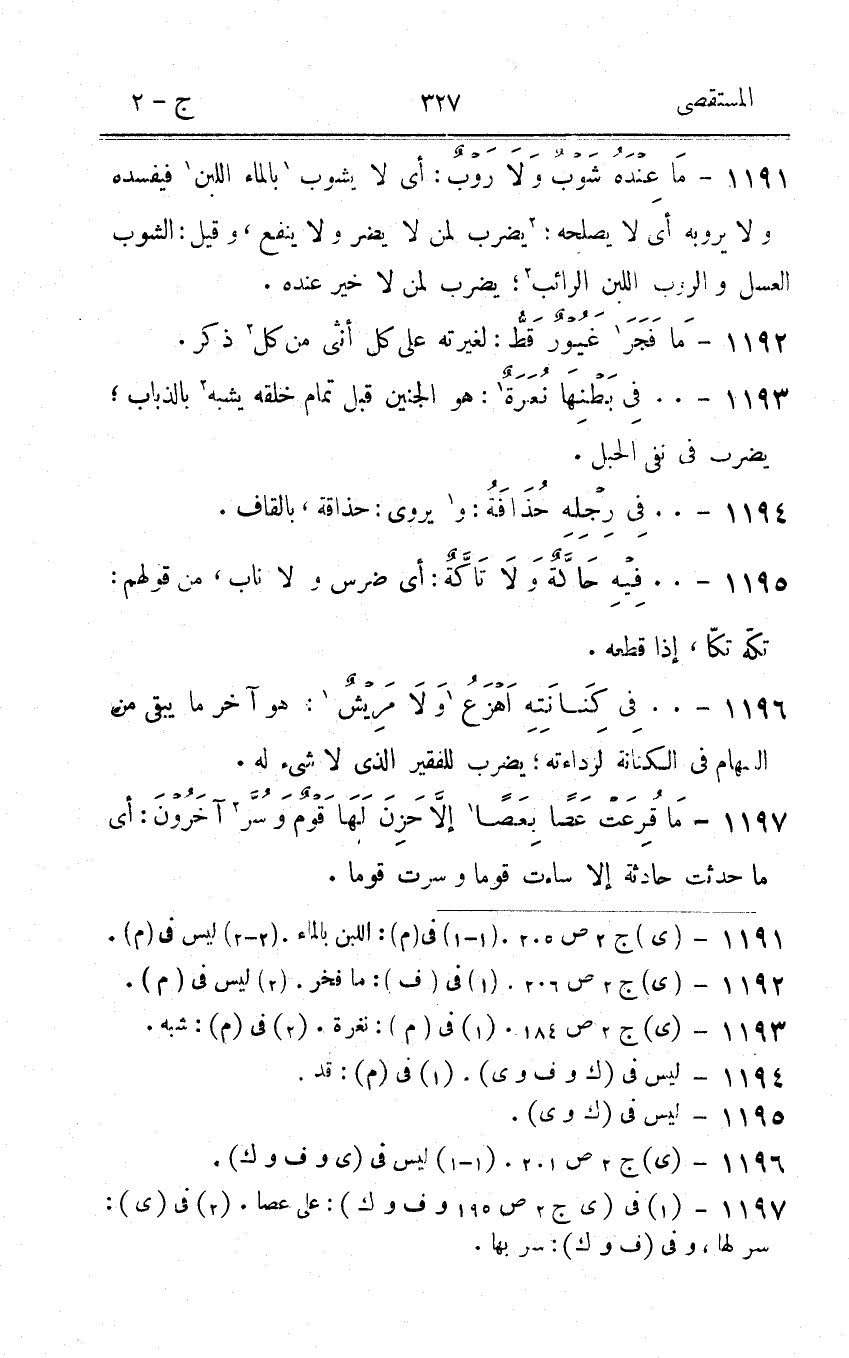 المستقصى ٣٢٧ ج - ٢
١١٩١ - مَا عِنْدَهُ شَوْبٌ وَلَا رَوْبٌ : أى لا يشوب ¹بالماء اللبن¹ فيفسده
و لا يروبه أى لا يصلحه : ²يضرب لمن لا يضر و لا ينفع ، و قيل : الشوب
العسل و الروب اللبن الرائب² ؛ يضرب لمن لا خير عنده .
١١٩٢ - مَا فَجَرَ¹ غَيُورٌ قَطُّ : لغيرته على كل أنثى من كل² ذكر .
١١٩٣ - . . فِى بَطْنِهَا نُعَرَةٌ¹ : هو الجنين قبل تمام خلقه يشبه² بالذباب ؛
يضرب فى نفى الحبل .
١١٩٤ - . . فِى رِجْلِهِ حُذَافَةُ : و¹ يروى : حذاقة ، بالقاف .
١١٩٥ - . . فِيْهِ حَاكَّةٌ وَ لَا تَاكَّةٌ : أى ضرس و لا ناب ، من قولهم :
تكّه تكّا ، إذا قطعه .
١١٩٦ - . . فِى كِنَانَتِهِ اَهْزَعُ ¹وَ لَا مَرِيْشٌ¹ : هو آخر ما يبقى من
السهام فى الكنانة لرداءته ؛ يضرب للفقير الذى لا شىء له .
١١٩٧ - مَا قُرِعَتْ عَصًا بِعَصًا¹ إلَّا حَزِنَ لَهَا قَوْمٌ وَ سُرَّ² آخَرُوْنَ : أى
ما حدثت حادثة إلا ساءت قوما و سرت قوما .
١١٩١ - (ى) ج ٢ ص ٢٠٥ . (١-١) فى (م) : اللبن بالماء . (٢-٢) ليس فى (م) .
١١٩٢ - (ى) ج ٢ ص ٢٠٦ . (١) فى ( ف ) : ما فخر . (٢) ليس فى ( م ) .
١١٩٣ - (ى) ج ٢ ص ١٨٤ . (١) فى ( م ) : نغرة . (٢) فى (م) : شبه .
١١٩٤ - ليس فى (ك و ف و ى) . (١) فى (م) : قد .
١١٩٥ - ليس فى (ك و ى) .
١١٩٦ - (ى) ج ٢ ص ٢٠١ . (١-١) ليس فى (ى و ف و ك) .
١١٩٧ - (١) فى ( ى ج ٢ ص ١٩٥ و ف و ك ) : على عصا . (٢) فى (ى) :
سر لها ، و فى (ف و ك) : سر بها .